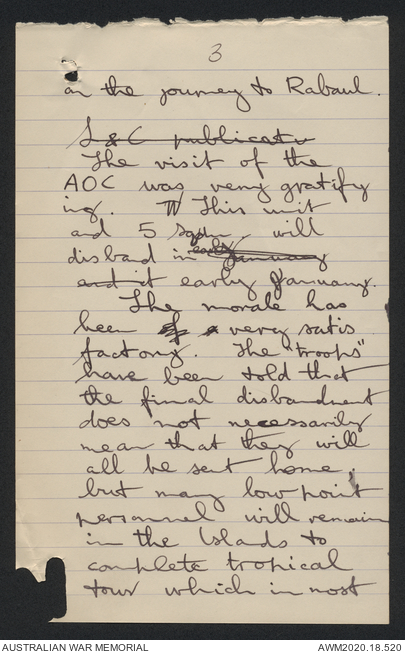 3
on the journey to Rabaul.
L & C publicat
The visit of the
AOC was very gratify
ing. This unit
and 5 Sqdn. will
disband in early January
and it early January.
The morale has
been very satis
factory. The "troops"
have been told that
the final disbandment
does not necessarily
mean that they will
all be sent home,
but many low point
personnel will remain
in the Islands to
complete tropical
tour which in most
AUSTRALIAN WAR MEMORIAL
AWM2020.18.520